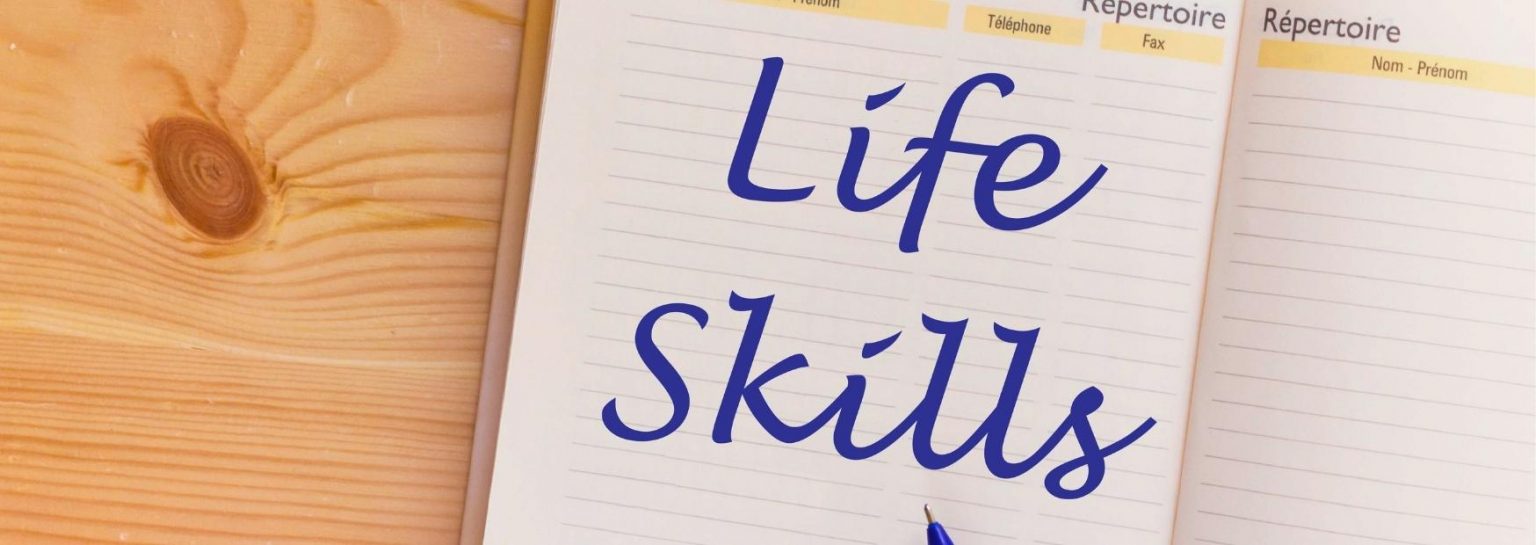 Prénom
Téléphone
Répertoire
Fax
Répertoire
Nom - Prénom
Life
Skills